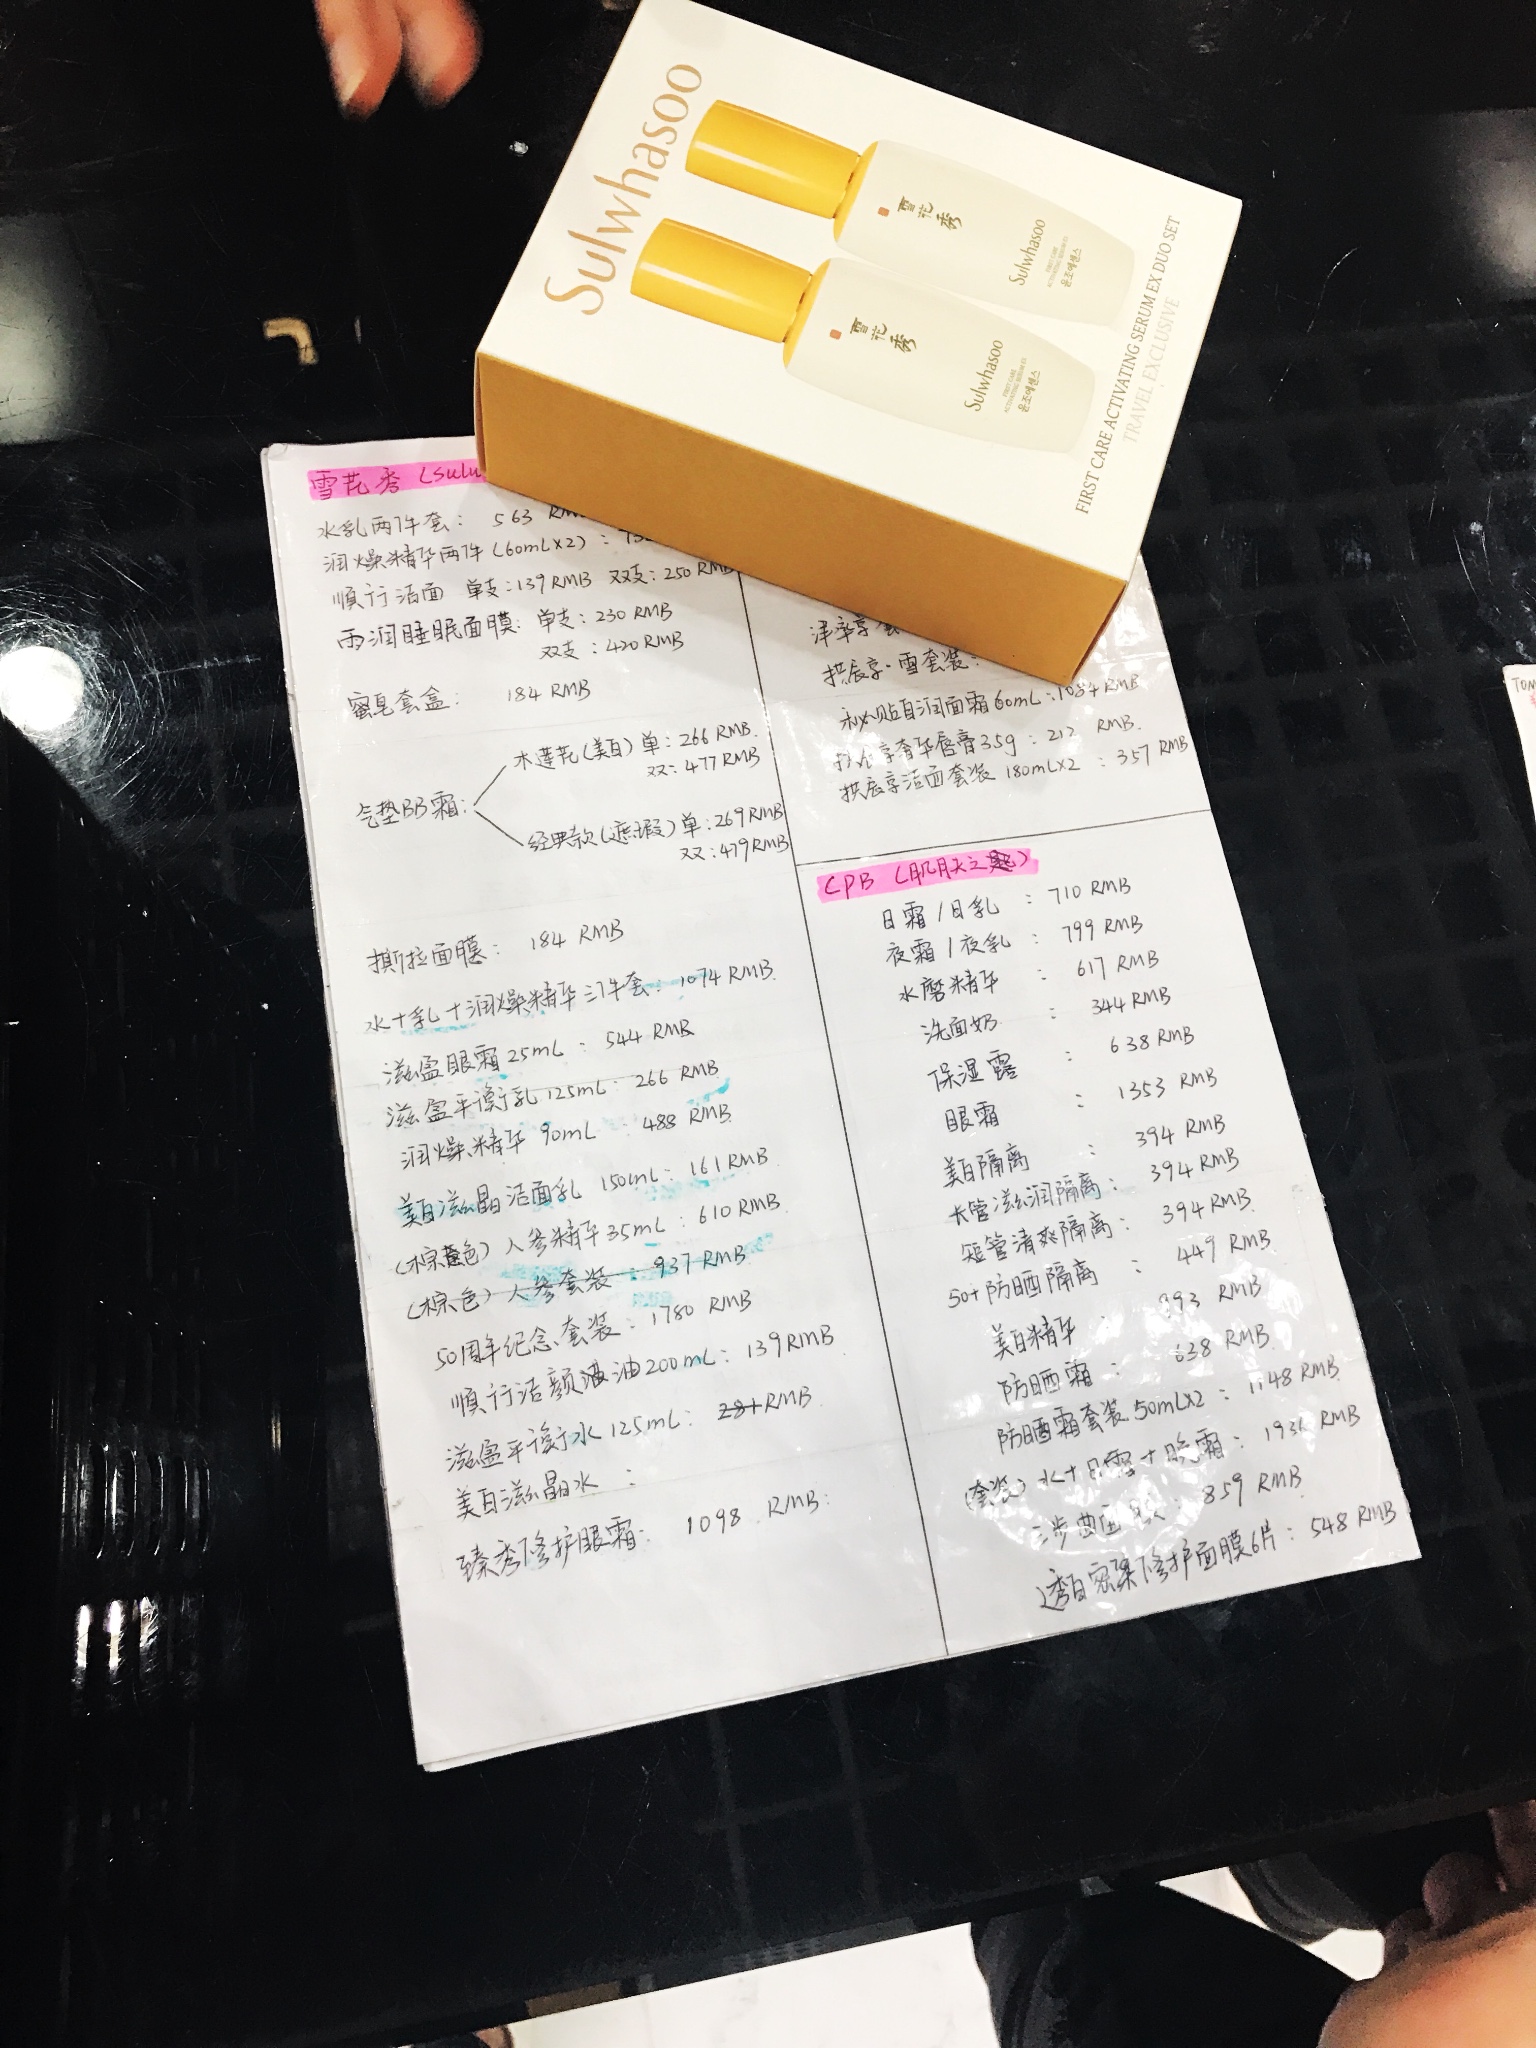 Sulwhasoo
雪花秀
Sulwhasoo
FIRST CARE
ACTIVATING SERUM EX
윤조에센스
雪花秀
Sulwhasoo
FIRST CARE
ACTIVATING SERUM EX
윤조에센스
FIRST CARE ACTIVATING SERUM EX DUO SET
TRAVEL EXCLUSIVE
雪花秀 (Sulw
水乳两件套： 563 RM
润燥精华两件(60mL×2)：
顺行洁面 单支：139 RMB 双支：250 RMB
雨润睡眠面膜：单支：230 RMB
双支：420 RMB
蜜皂套盒： 184 RMB
气垫BB霜：
木莲花(美白)单：266 RMB.
双：477 RMB
经典款(遮瑕)单：269 RMB
双：479 RMB
撕拉面膜： 184 RMB
水+乳+润燥精华三件套：1074 RMB.
滋盈眼霜25mL：544 RMB
滋盈平衡乳125mL：266 RMB
润燥精华 90mL：488 RMB
美白滋晶洁面乳 150mL：161 RMB
(棕色)人参精华35mL：610 RMB
(棕色)人参套装：937 RMB
50周年纪念套装：1780 RMB
顺行洁颜油200mL：139 RMB
滋盈平衡水125mL：281 RMB
美白滋晶水：
臻秀修护眼霜：1098 RMB
津率享 套
拱辰享·雪套装：
秘贴自润面霜60mL：1084 RMB
拱辰享奢华唇膏35g：212 RMB.
拱辰享洁面套装 180mL×2：357 RMB
CPB (肌肤之匙)
日霜/日乳：710 RMB
夜霜/夜乳：799 RMB
水磨精华：617 RMB
洗面奶：344 RMB
保湿露：638 RMB
眼霜：1353 RMB
美白隔离：394 RMB
长管滋润隔离：394 RMB
短管清爽隔离：394 RMB
50+防晒隔离：449 RMB
美白精华：993 RMB
防晒霜：638 RMB
防晒霜套装50mL×2：1148 RMB
(套装)水+日霜+晚霜：1936 RMB
三步曲面膜：859 RMB
透白密集修护面膜6片：548 RMB
TOM